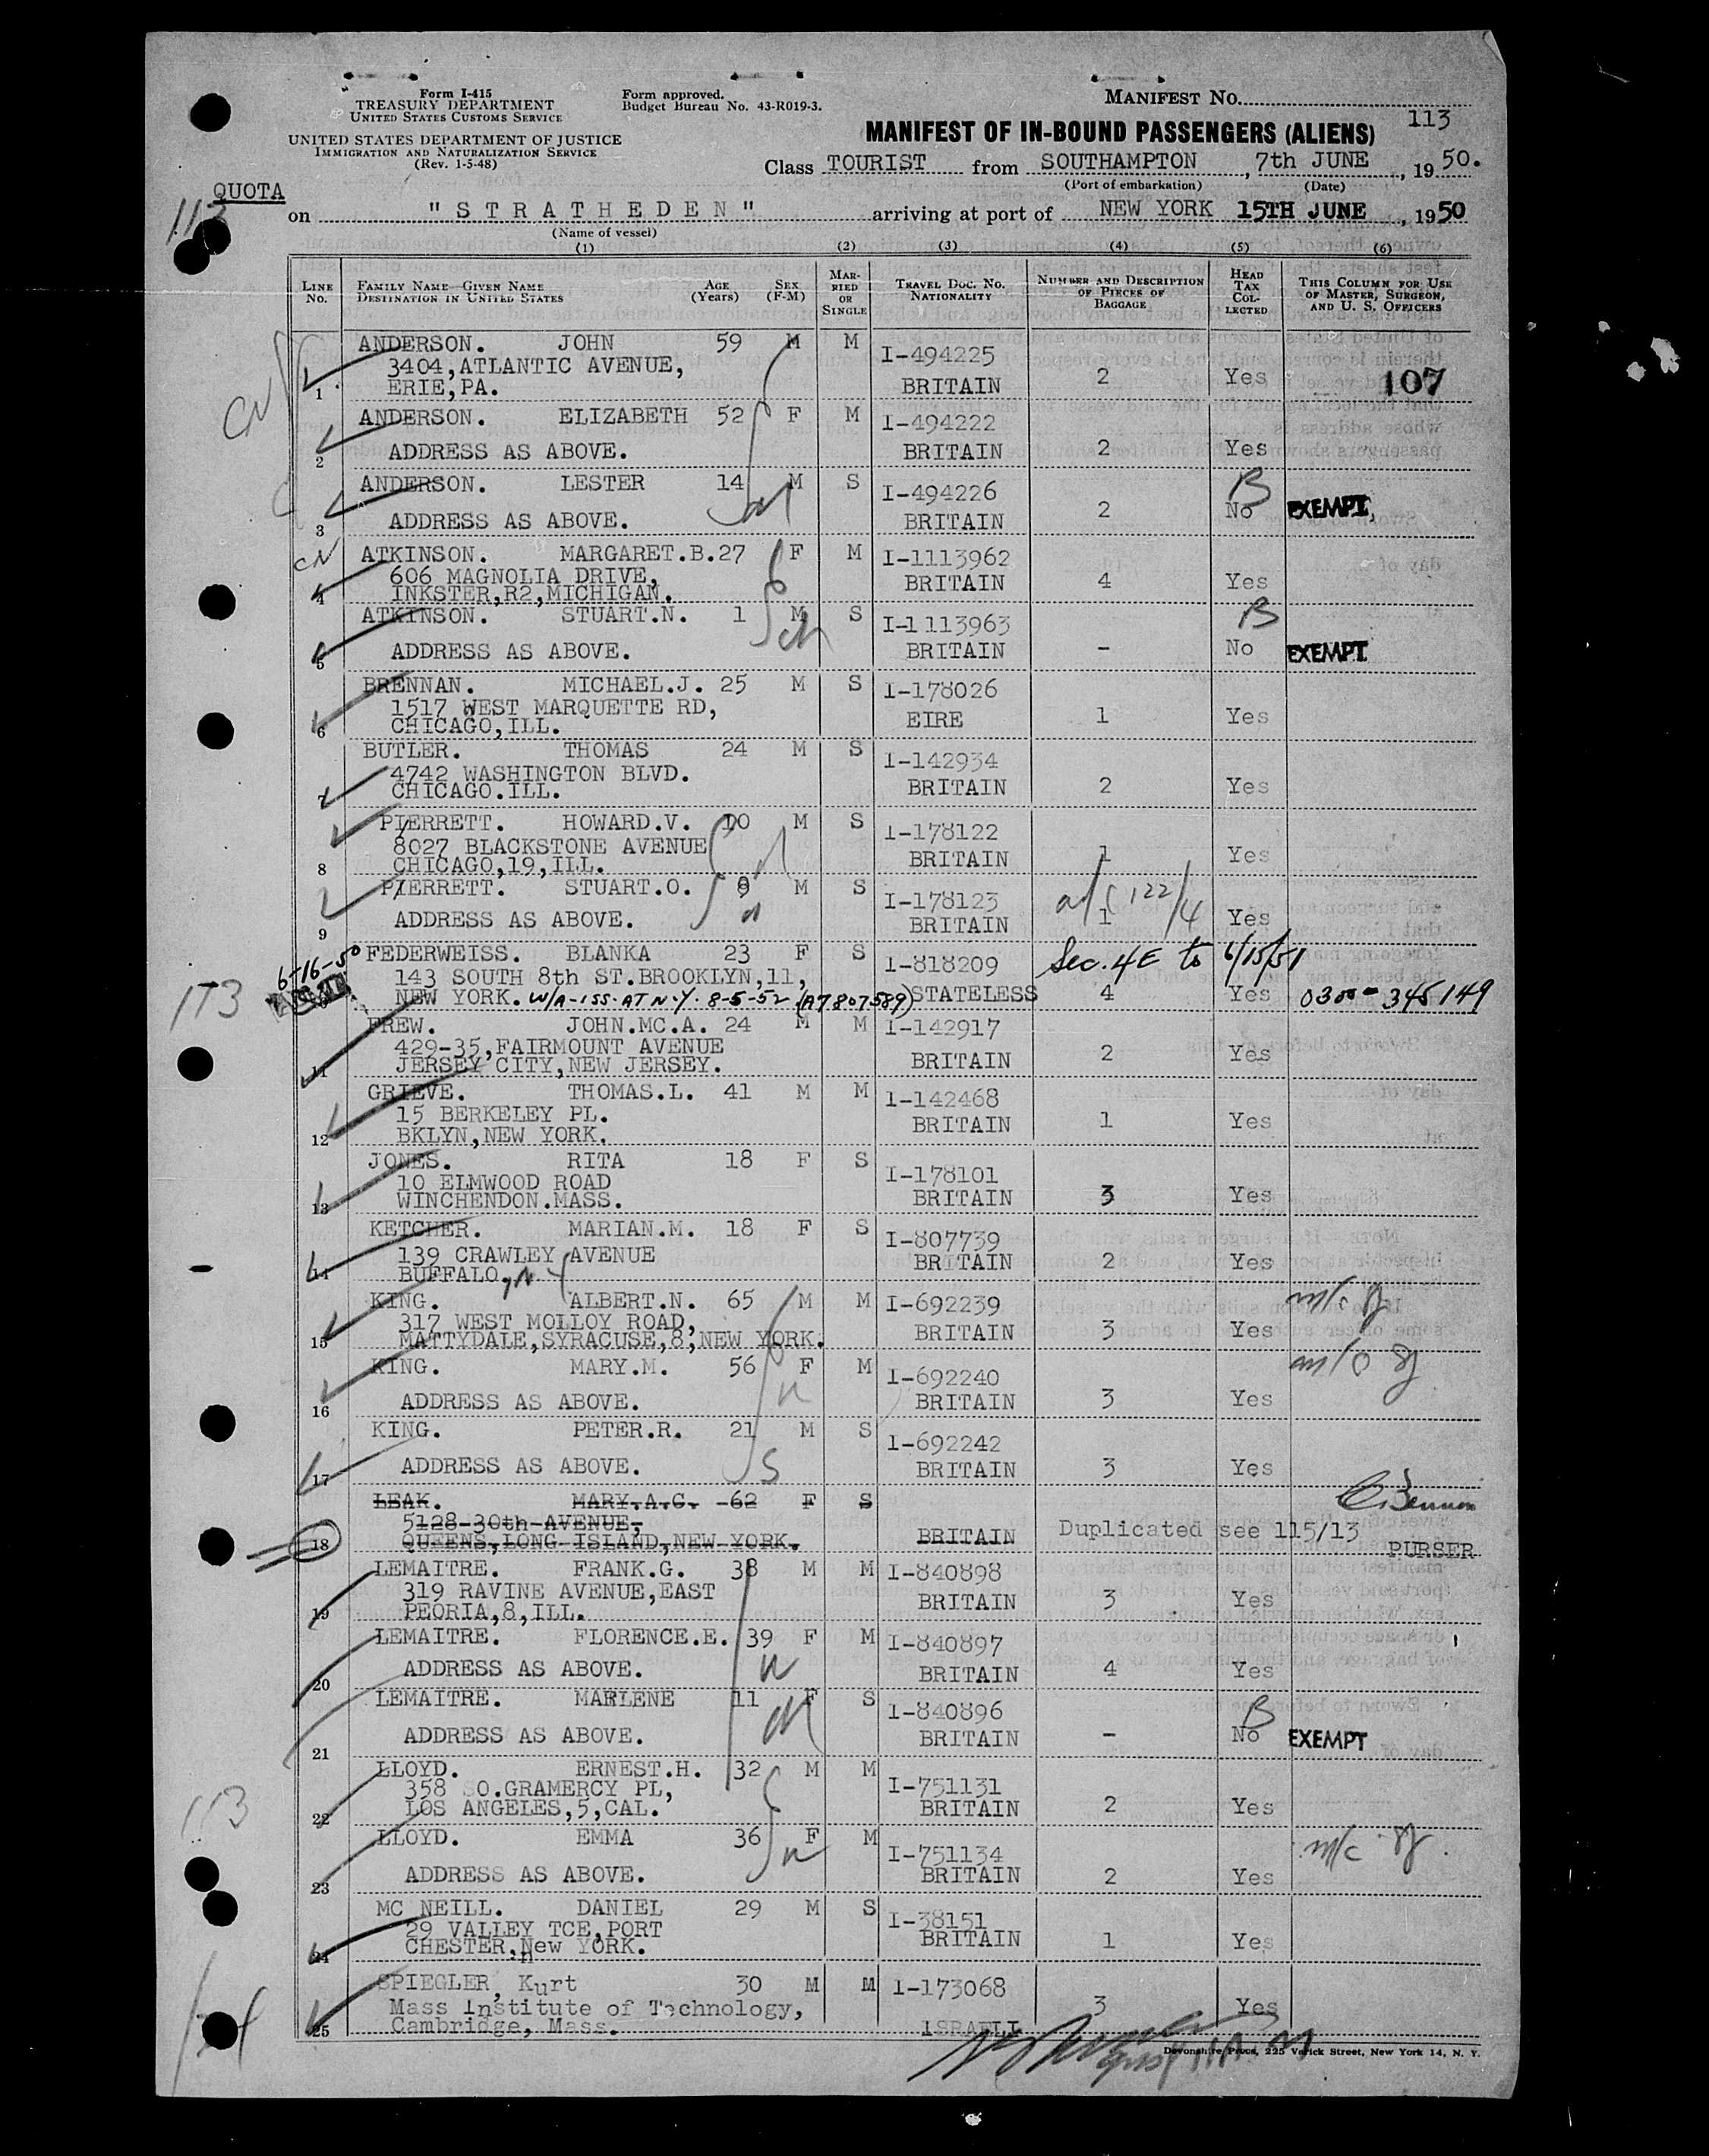 Form I-415
TREASURY DEPARTMENT
UNITED STATES CUSTOMS SERVICE
UNITED STATES DEPARTMENT OF JUSTICE
IMMIGRATION AND NATURALIZATION SERVICE
(Rev. 1-5-48)
Form approved.
Budget Bureau No. 43-R019-3.
MANIFEST NO.
113
MANIFEST OF IN-BOUND PASSENGERS (ALIENS)
Class TOURIST from SOUTHAMPTON, 7th JUNE, 1950.
(Port of embarkation) (Date)
QUOTA
113
on "STRATHEDEN" arriving at port of NEW YORK 15TH JUNE, 1950
(Name of vessel)
(1) (2) (3) (4) (5) (6)
LINE NO. FAMILY NAME—GIVEN NAME DESTINATION IN UNITED STATES AGE (Years) SEX (F-M) MARRIED OR SINGLE TRAVEL DOC. NO. NATIONALITY NUMBER AND DESCRIPTION OF PIECES OF BAGGAGE HEAD TAX COLLECTED THIS COLUMN FOR USE OF MASTER, SURGEON, AND U. S. OFFICERS
ANDERSON. JOHN 59 M M I-494225
3404,ATLANTIC AVENUE,
1 ERIE,PA. BRITAIN 2 Yes 107
CN
ANDERSON. ELIZABETH 52 F M I-494222
2 ADDRESS AS ABOVE. BRITAIN 2 Yes
ANDERSON. LESTER 14 M S I-494226 B
3 ADDRESS AS ABOVE. BRITAIN 2 No EXEMPT
CN ATKINSON. MARGARET.B. 27 F M I-1113962
606 MAGNOLIA DRIVE,
4 INKSTER,R2,MICHIGAN. BRITAIN 4 Yes
ATKINSON. STUART.N. 1 M S I-1113963 B
5 ADDRESS AS ABOVE. BRITAIN - No EXEMPT
BRENNAN. MICHAEL.J. 25 M S I-178026
1517 WEST MARQUETTE RD,
6 CHICAGO,ILL. EIRE 1 Yes
BUTLER. THOMAS 24 M S I-142934
4742 WASHINGTON BLVD.
7 CHICAGO.ILL. BRITAIN 2 Yes
PIERRETT. HOWARD.V. 10 M S I-178122
8027 BLACKSTONE AVENUE
8 CHICAGO,19,ILL. BRITAIN 1 Yes
PIERRETT. STUART.O. 9 M S I-178123 122/4
9 ADDRESS AS ABOVE. BRITAIN 1 Yes
6-16-50 FEDERWEISS. BLANKA 23 F S I-818209 Sec. 4E to 6/15/51
113 143 SOUTH 8th ST.BROOKLYN,11,
NEW YORK. W/A-ISS. AT N.Y. 8-5-52 (A7807589) STATELESS 4 Yes 0300-345149
FREW. JOHN.MC.A. 24 M M I-142917
429-35,FAIRMOUNT AVENUE
11 JERSEY CITY,NEW JERSEY. BRITAIN 2 Yes
GRIEVE. THOMAS.L. 41 M M I-142468
15 BERKELEY PL.
12 BKLYN,NEW YORK. BRITAIN 1 Yes
JONES. RITA 18 F S I-178101
10 ELMWOOD ROAD
13 WINCHENDON.MASS. BRITAIN 3 Yes
KETCHER. MARIAN.M. 18 F S I-807739
139 CRAWLEY AVENUE
14 BUFFALO, N.Y BRITAIN 2 Yes
KING. ALBERT.N. 65 M M I-692239
317 WEST MOLLOY ROAD,
15 MATTYDALE,SYRACUSE,8,NEW YORK. BRITAIN 3 Yes
KING. MARY.M. 56 F M I-692240
16 ADDRESS AS ABOVE. BRITAIN 3 Yes
KING. PETER.R. 21 M S I-692242
17 ADDRESS AS ABOVE. BRITAIN 3 Yes
LEAK. MARY.A.G. 62 F S
5128-30th-AVENUE,
18 QUEENS,LONG ISLAND,NEW YORK. BRITAIN Duplicated see 115/13 PURSER
LEMAITRE. FRANK.G. 38 M M I-840898
319 RAVINE AVENUE,EAST
19 PEORIA,8,ILL. BRITAIN 3 Yes
LEMAITRE. FLORENCE.E. 39 F M I-840897
20 ADDRESS AS ABOVE. BRITAIN 4 Yes
LEMAITRE. MARLENE 11 F S I-840896 B
21 ADDRESS AS ABOVE. BRITAIN - No EXEMPT
113
LLOYD. ERNEST.H. 32 M M I-751131
358 SO.GRAMERCY PL,
22 LOS ANGELES,5,CAL. BRITAIN 2 Yes
LLOYD. EMMA 36 F M I-751134
23 ADDRESS AS ABOVE. BRITAIN 2 Yes
MC NEILL. DANIEL 29 M S I-38151
29 VALLEY TCE,PORT
24 CHESTER,New YORK. BRITAIN 1 Yes
SPIEGLER, Kurt 30 M M I-173068
Mass Institute of Technology,
25 Cambridge, Mass. ISRAELI 3 Yes
Devonshire Press, 225 Varick Street, New York 14, N. Y.